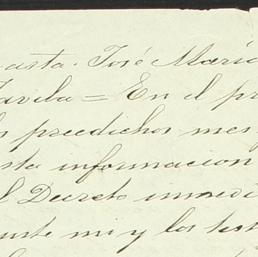 asta. José María
Favila = En el pr
s predichos mes
sta informacion
l Decreto inmedi
unte mi y los test